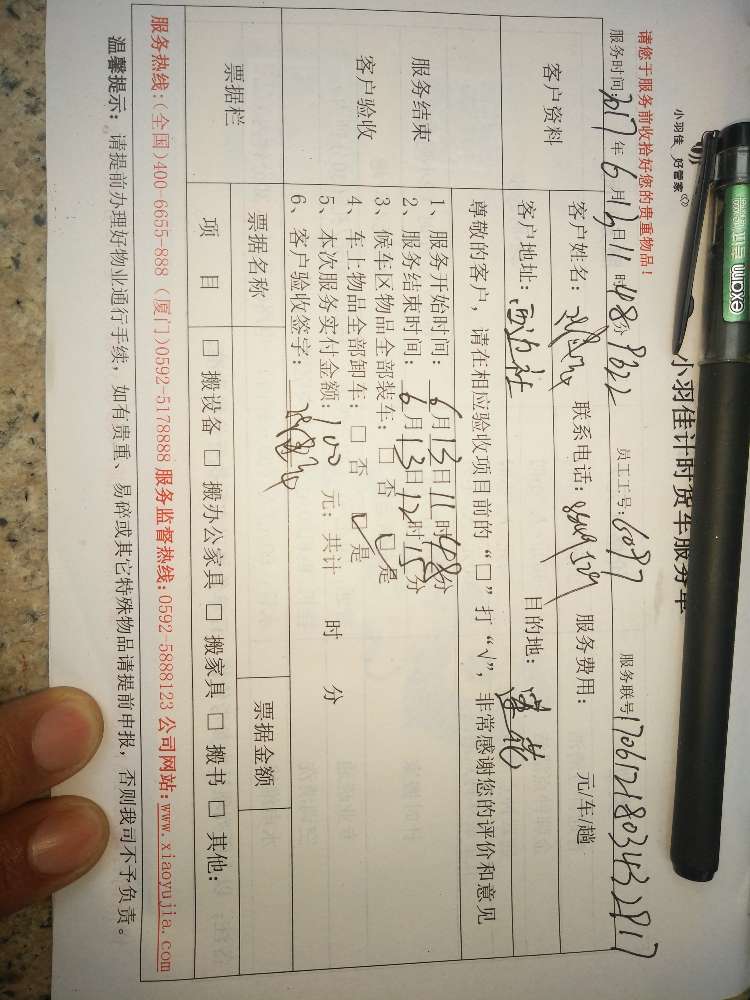 小羽佳 好管家
maxe
小羽佳计时货车服务单
请您于服务前收拾好您的贵重物品！
服务时间：2017年6月13日11时48分 员工工号：6097 服务联号17061218034328 17
客户资料
客户姓名： 联系电话： 服务费用： 元/车/趟
客户地址： 目的地：莲花
服务结束
客户验收
尊敬的客户，请在相应验收项目前的“□”打“√”，非常感谢您的评价和意见
1、服务开始时间：6月13日11时48分
2、服务结束时间：6月13日12时15分
3、候车区物品全部装车：□ 否 ☑ 是
4、车上物品全部卸车：□ 否 ☑ 是
5、本次服务实付金额：100 元；共计 时 分
6、客户验收签字：
票据栏
票据名称 票据金额
项 目 □ 搬设备 □ 搬办公家具 □ 搬家具 □ 搬书 □ 其他：
服务热线：（全国）400-6655-888（厦门）0592-5178888 服务监督热线：0592-5888123 公司网站：www.xiaoyujia.com
温馨提示：请提前办理好物业通行手续，如有贵重、易碎或其它特殊物品请提前申报，否则我司不予负责。